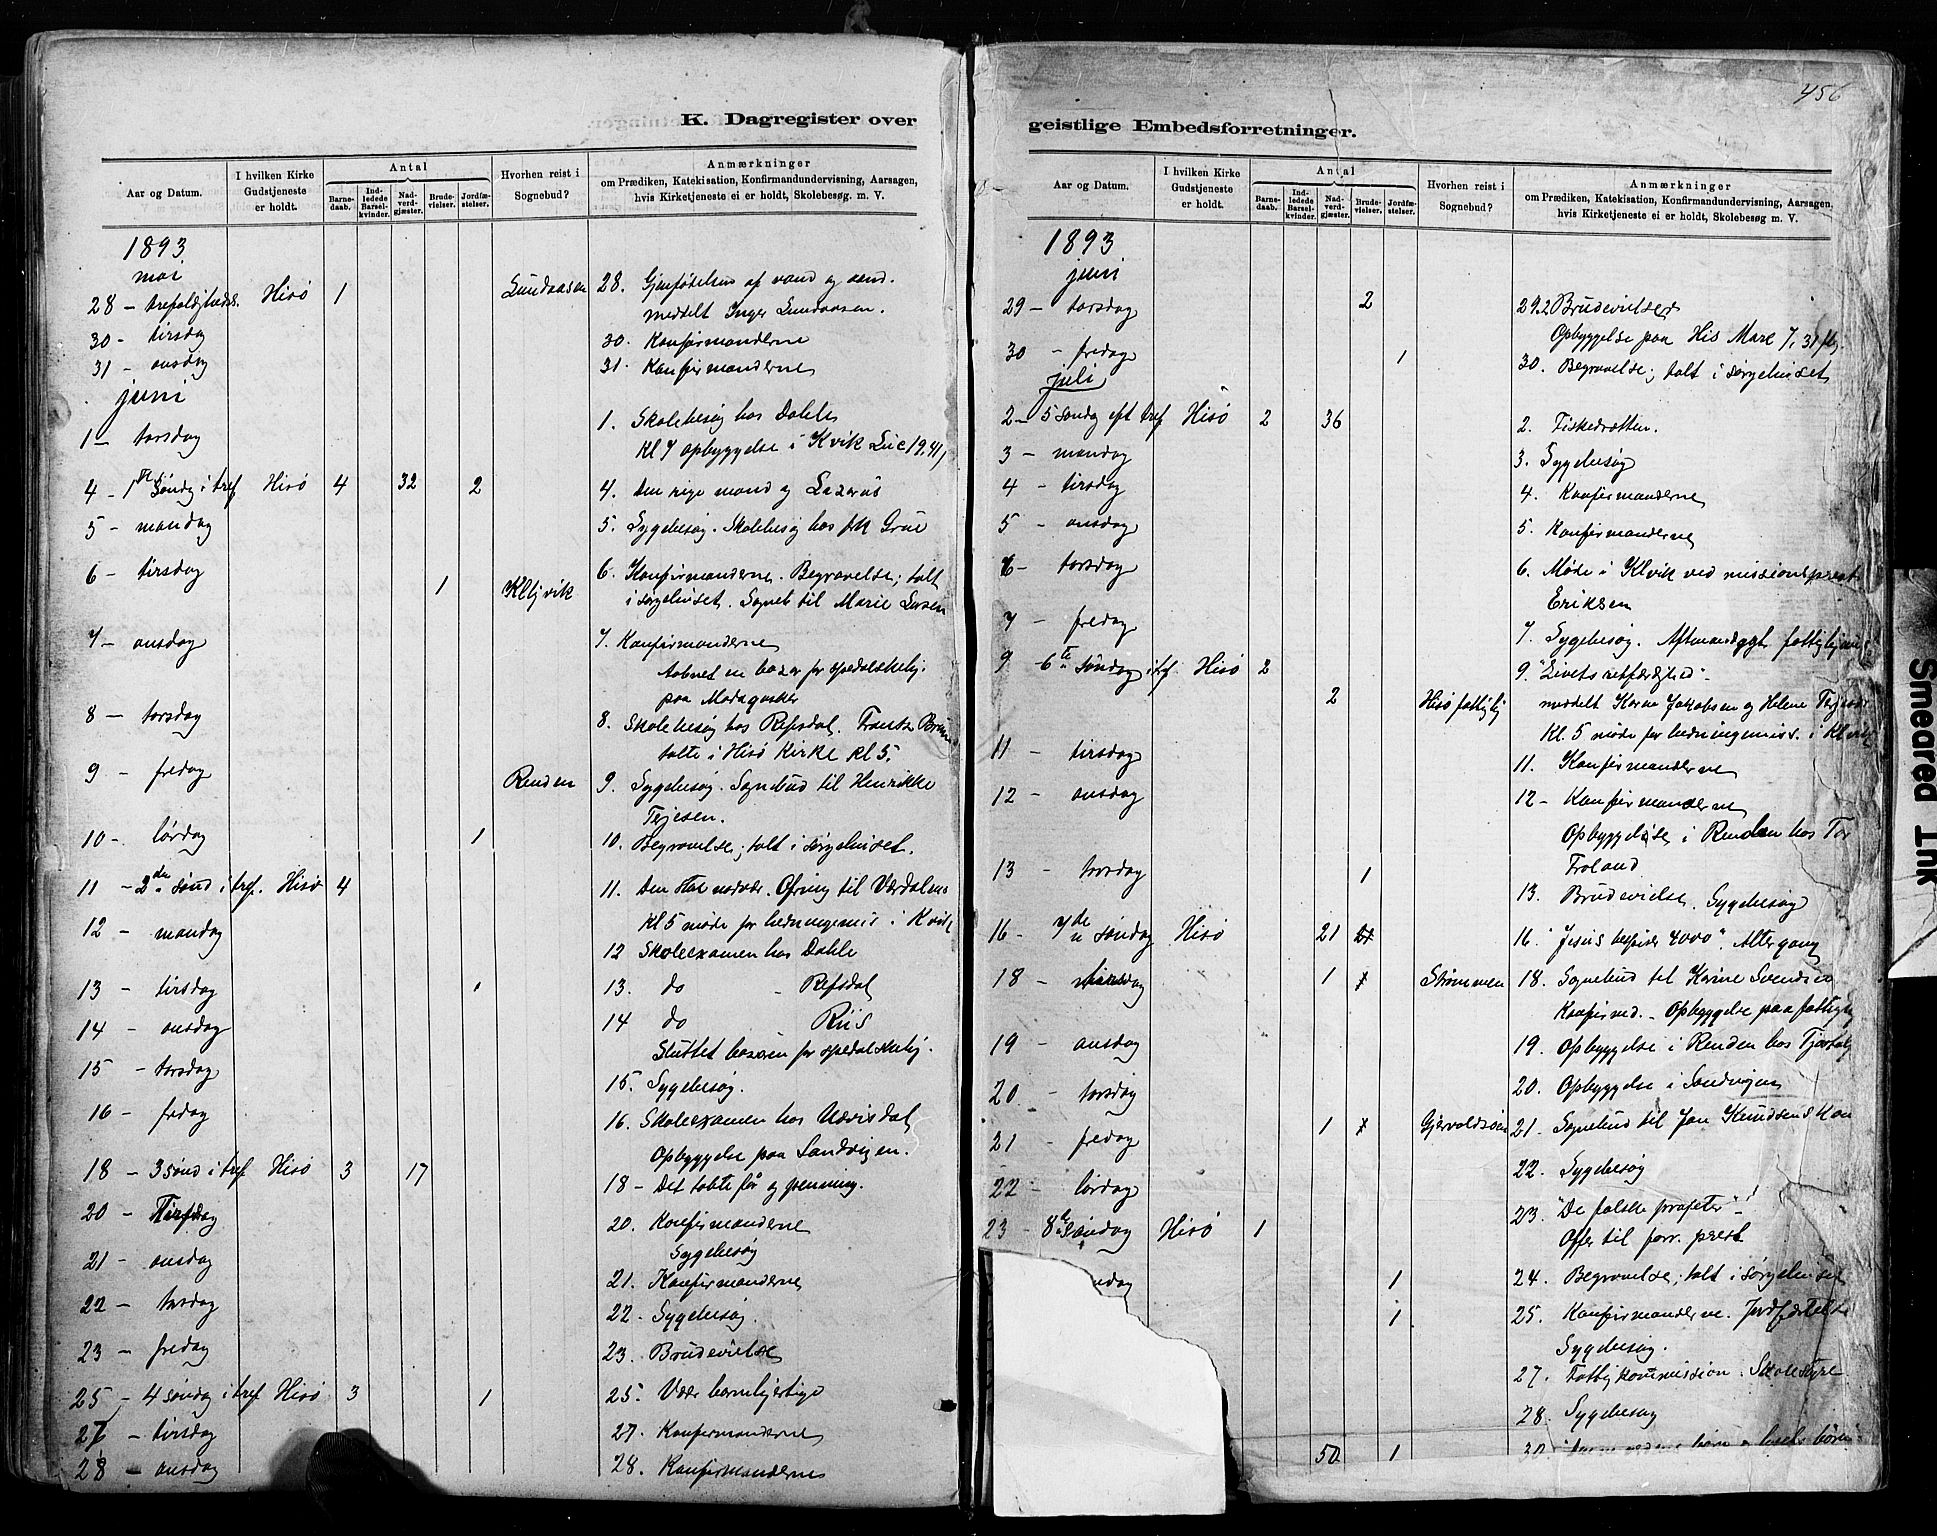 456
K. Dagregister over
Aar og Datum.
I hvilken Kirke Gudstjeneste er holdt.
Antal
Barnedaab.
Indledede Barselkvinder.
Nadverdgjæster.
Brudevielser.
Jordfæstelser.
Hvorhen reist i Sognebud?
Anmærkninger
om Prædiken, Katekisation, Konfirmandundervisning, Aarsagen,
hvis Kirketjeneste ei er holdt, Skolebesøg m. V.
1893
mai
28 - trefoldigheds. Hisø 1 Lundaasen 28. Gjenfødelsen af vand og aand.
meddelt Inger Lundaasen.
30 - tirsdag 30. Konfirmanderne
31 - onsdag 31. Konfirmanderne
juni
1 - torsdag 1. Skolebesøg hos Dahle
Kl 7 opbyggelse i Kvik Luc 19.41,
4 - 1ste søndg i tref Hisø 4 32 2 4. Den rige mand og Lazarus
5 - mandag 5. Sygebesøg. Skolebesøg hos frk Grue
6 - tirsdag 1 Klljvik 6. Konfirmanderne. Begravelse; talt
i sørgehuset. Sognebud til Marie Larsen
7 - onsdag 7. Konfirmanderne
Aabnet en basar for spedalskehj.
paa Madagaskar
8 - torsdag 8. Skolebesøg hos Refsdal. Frants
talte i Hisø Kirke kl 5.
9 - fredag Renden 9. Sygebesøg. Sognebud til Henrikke
Terjesen.
10 - lørdag 1 10. Begravelse; talt i sørgehuset.
11 - 2den sønd i tref. Hisø 4 11. Den store nadver. Ofring til
kl 5 møde for hedningemis i Kvik
12 - mandag 12 Skoleexamen hos Dahle
13 - tirsdag 1 13. do - Refsdal
14 - onsdag 14 do Riis
Sluttet basaren for spedalskehj.
15 - torsdag 15. Sygebesøg.
16 - fredag 16. Skoleexamen hos Udvisdal
Opbyggelse paa Sandvigen.
18 - 3 sønd i tref Hisø 3 17 18 - Det tabte får og penning.
20 - Tirsdag 20. Konfirmanderne
Sygebesøg
21 - onsdag 21. Konfirmanderne
22 - torsdag 22. Sygebesøg.
23 - fredag 23. Brudevielse
25 - 4 søndag i tref Hisø 3 1 25. Vær barmhjertige
27 - tirsdag 27. Konfirmanderne
28 - onsdag 28. Konfirmanderne
geistlige Embedsforretninger.
Aar og Datum.
I hvilken Kirke Gudstjeneste er holdt.
Antal
Barnedaab.
Indledede Barselkvinder.
Nadverdgjæster.
Brudevielser.
Jordfæstelser.
Hvorhen reist i Sognebud?
Anmærkninger
om Prædiken, Katekisation, Konfirmandundervisning, Aarsagen,
hvis Kirketjeneste ei er holdt, Skolebesøg m. V.
1893
juni
29 - torsdag 2 29. 2 Brudevielser
Opbyggelse paa His Marc 7, 31 flg.
30 - fredag 1 30. Begravelse; talt i sørgehuset
juli
2 - 5 søndg eft tref Hisø 2 36 2. Fiskedrætten.
3 - mandag 3. Sygebesøg
4 - tirsdag 4. Konfirmanderne
5 - onsdag 5. Konfirmanderne
6 - torsdag 6. Møde i Klvik ved missionsprest
Eriksen
7 - fredag 7. Sygebesøg. fattighjem
9 6te søndag i tref. Hisø 2 9. "Livets retfærdighed" -
2 Hisø fattighj meddelt Karen Jakobsen og Helene Terjesen
Kl. 5 møde for hedningemiss. i Klvik
11 - tirsdag 11. Konfirmanderne
12 - onsdag 12 - Konfirmanderne
Opbyggelse i Renden hos Tor
Froland
13 - torsdag 1 13. Brudevielse. Sygebesøg
16 - 7de søndag Hisø 21 16. "Jesus bespiser 4000". Altergang
18 - tirsdag 1 Strømmen 18. Sognebud til Karine Svendsen
Konfirmd. - Opbyggelse paa fattighj
19 - onsdag 19. Opbyggelse i Renden hos
20 - torsdag 20. Opbyggelse i Sandvigen
21 - fredag 1 Gjervoldsøen 21. Sognebud til Jan Knudsens kon
22 - lørdag 22. Sygebesøg
23 - 8de søndag Hisø 1 23. "De falske profeter" -
Offer til forr. prest
ndag 1 24. Begravelse; talt i sørgehuset
1 25. Konfirmanderne. Jordfæstelse
Sygebesøg.
27. Fattigkommission. Skolestyre
28. Sygebesøg
50 1 30.
Smeared Ink